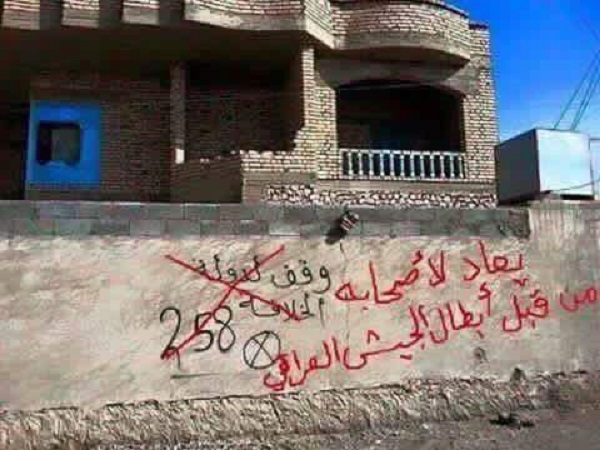 وقف لدولة
الخلافة
258
يعاد لأصحابه
من قبل أبطال الجيش العراقي